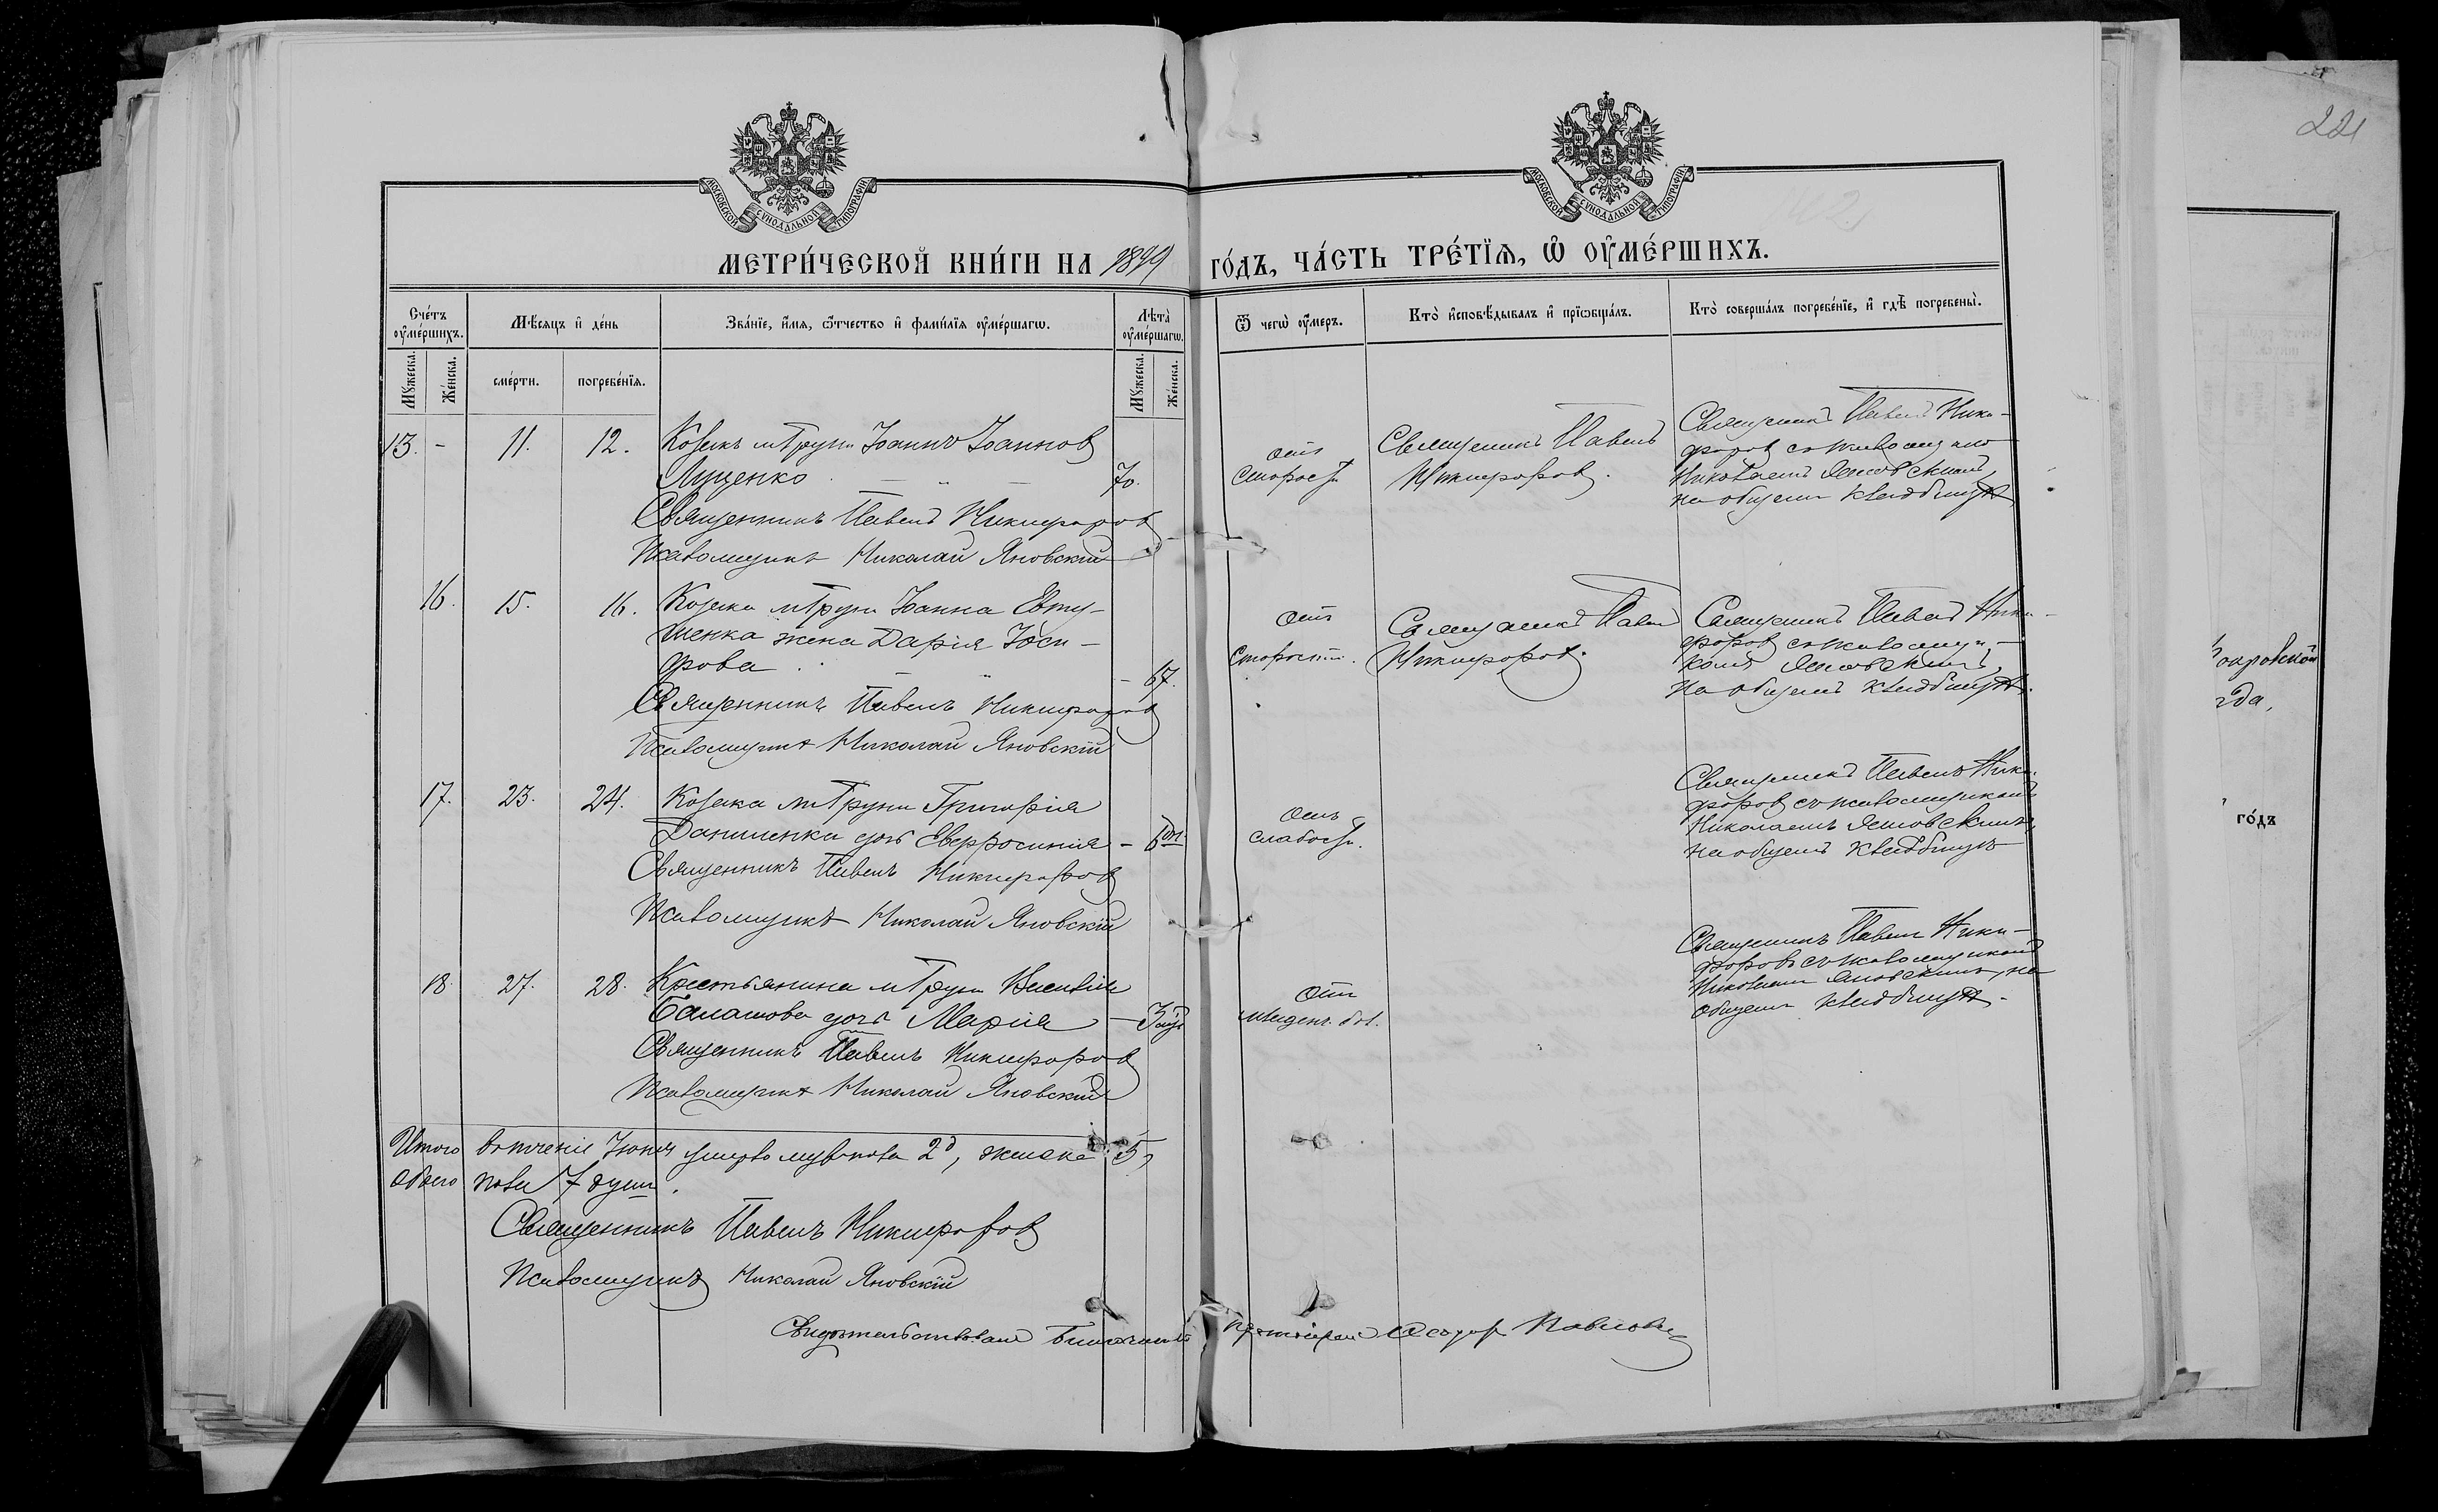 221
МОСКОВСКОЙ СѴНОДАЛЬНОЙ ТИПОГРАФІИ
МОСКОВСКОЙ СѴНОДАЛЬНОЙ ТИПОГРАФІИ
МЕТРИ́ЧЕСКОЙ КНИ́ГИ НА 1899 ГО́ДЪ, ЧА́СТЬ ТРЕ́ТЇѦ, Ѡ҆ ОУ҆МЕ́РШИХЪ.
Сче́тъ оу҆ме́ршихъ.
Мꙋ́жеска.
Же́нска.
Мѣ́сяцъ и҆ де́нь
сме́рти.
погребе́нїѧ.
Зва́нїе, и҆́мѧ, ѻ҆́тчество и҆ фами́лїѧ оу҆ме́ршагѡ.
Лѣ́та̀ оу҆ме́ршагѡ.
Мꙋ́жеска.
Же́нска.
Ѿ чегѡ̀ оу҆́меръ.
Кто̀ и҆сповѣ́дывалъ и҆ прїѡбща́лъ.
Кто̀ соверша́лъ погребе́нїе, и҆ гдѣ̀ погребены̀.
13. - 11. 12. Козакъ м Груни Іоаннъ Іоаннов
Луценко 70.
Священникъ Павелъ Никифоров
Псаломщикъ Николай Яновскій
отъ
старости
Священникъ Павелъ
Никифоров.
Священникъ Павелъ Ники-
форов съ псаломщико
Николаемъ Яновскимъ,
на общем кладбищѣ
16. 15. 16. Козака м Груни Іоанна Евту-
шенка жена Дарія Іоси-
фова - 67.
Священникъ Павелъ Никифоров
Псаломщикъ Николай Яновскій
отъ
старости.
Священникъ Павел
Никифоров.
Священникъ Павелъ Ники-
форов съ псаломщи-
комъ Яновскимъ,
на общемъ кладбищѣ.
17. 23. 24. Козака м Груни Григорія
Даниленка дочь Евфросинія - 6 дн
Священникъ Павелъ Никифоров
Псаломщикъ Николай Яновскій
отъ
слабости.
Священникъ Павелъ Ники-
форов съ псаломщикомъ
Николаемъ Яновскимъ,
на общемъ кладбищѣ
18. 27. 28. Крестьянина м Груни Василія
Балашова дочь Марія - 3
Священникъ Павелъ Никифоров
Псаломщикъ Николай Яновскій
отъ
младенч. бол.
Священникъ Павелъ Ники-
форовъ съ псаломщикомъ
Николаем Яновскимъ, на
общем кладбищѣ.
Итого въ теченіе Іюня умерло мужска 2, женска 5,
обоего пола 7 душъ.
Священникъ Павелъ Никифоров
Псаломщикъ Николай Яновскій
Свидѣтельствовалъ Благочинный Протоіерей Павловъ
окровской
да,
го́дъ